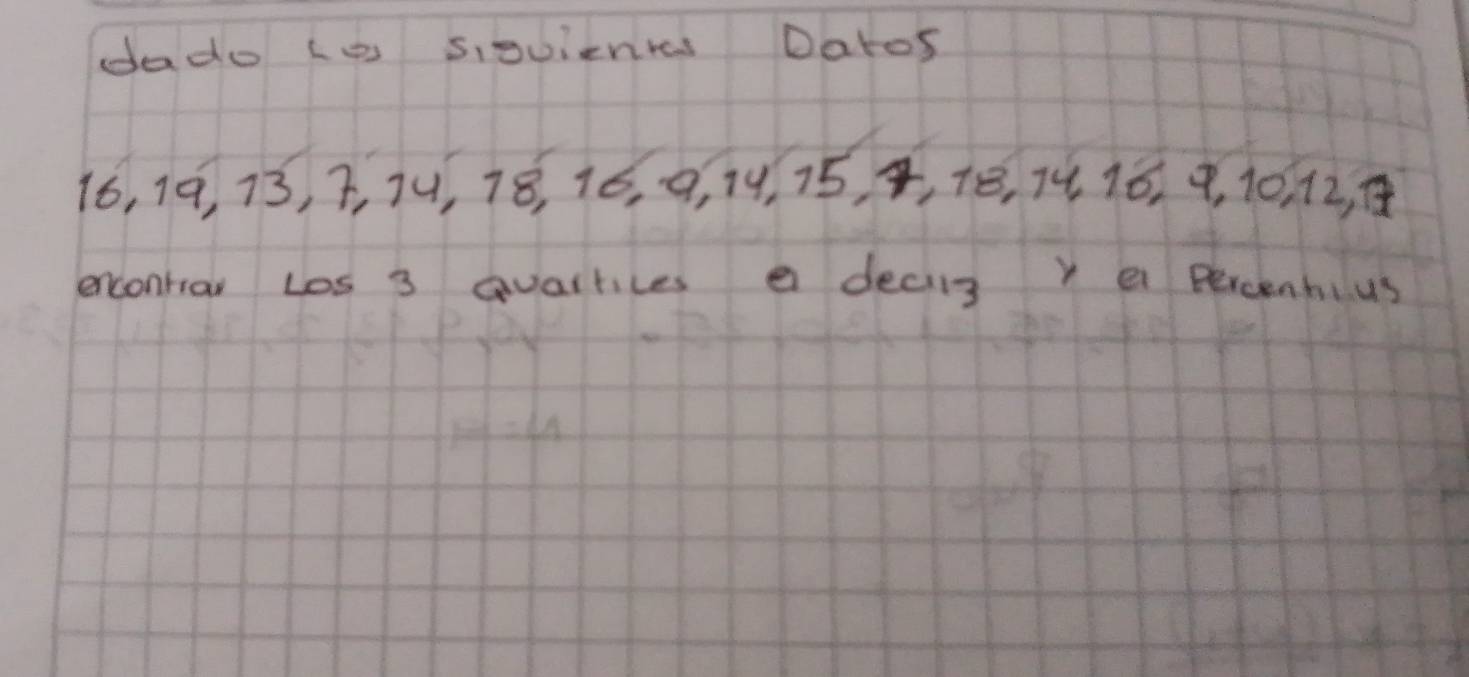 dado los siguientes Datos
16, 19, 13, 7, 14, 18, 16, 9, 14, 15, 7, 18, 14, 16, 9, 10, 12, 17
encontrar Los 3 quartiles e decil3 y el Percentil45